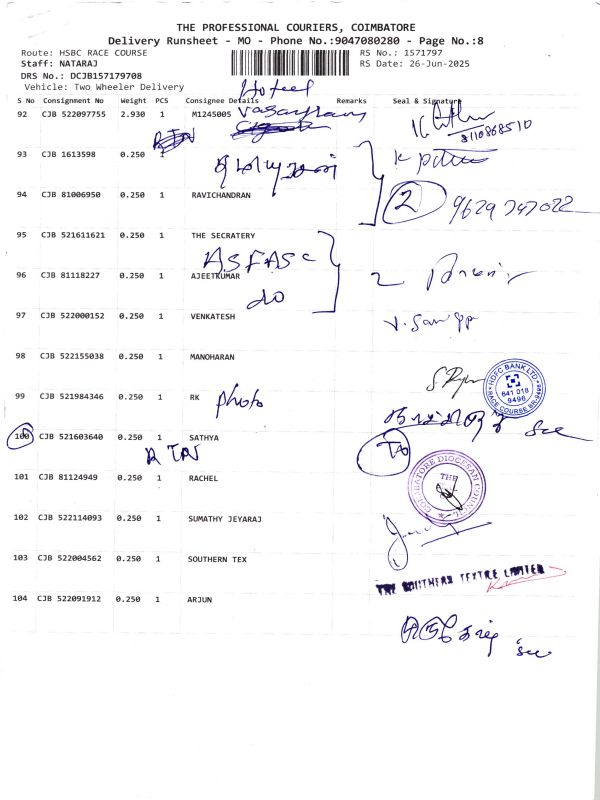 THE PROFESSIONAL COURIERS, COIMBATORE
Delivery Runsheet - MO - Phone No.:9047080280 - Page No.:8
Route: HSBC RACE COURSE RS No.: 1571797
Staff: NATARAJ RS Date: 26-Jun-2025
DRS No.: DCJB157179708
Vehicle: Two Wheeler Delivery
Hotel
S No Consignment No Weight PCS Consignee Details Remarks Seal & Signature
92 CJB 522097755 2.930 1 M1245005
3110868510
93 CJB 1613598 0.250 1
94 CJB 81006950 0.250 1 RAVICHANDRAN
2 9629 747022
95 CJB 521611621 0.250 1 THE SECRATERY
96 CJB 81118227 0.250 1 AJEETKUMAR
do
97 CJB 522000152 0.250 1 VENKATESH
98 CJB 522155038 0.250 1 MANOHARAN
HDFC BANK LTD
641 018
9496
RACE COURSE BR-9496
99 CJB 521984346 0.250 1 RK photo
100 CJB 521603640 0.250 1 SATHYA
101 CJB 81124949 0.250 1 RACHEL
COIMBATORE DIOCESAN COUNCIL
THE
102 CJB 522114093 0.250 1 SUMATHY JEYARAJ
103 CJB 522004562 0.250 1 SOUTHERN TEX
THE SOUTHERN TEXTILE LIMITED
104 CJB 522091912 0.250 1 ARJUN